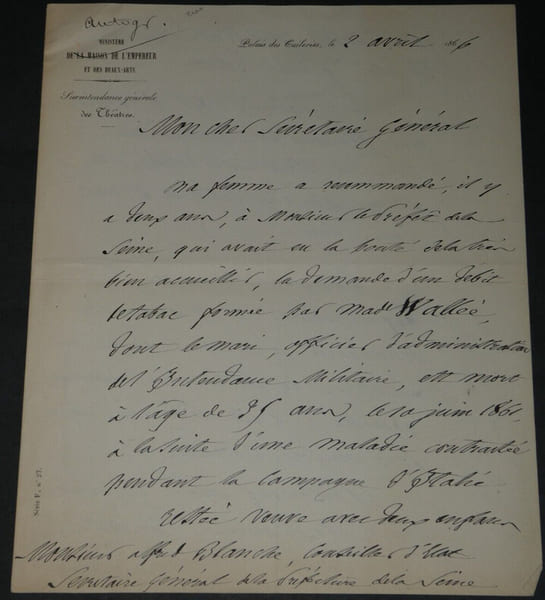 Autogr.
MINISTÈRE
DE LA MAISON DE L'EMPEREUR
ET DES BEAUX-ARTS.
Surintendance générale
des Théâtres.
Palais des Tuileries, le 2 avril 1866
Mon cher Secrétaire Général
ma femme a recommandé, il y
a deux ans, à Monsieur le Préfet de la
Seine, qui avait eu la bonté de la très
bien accueillir, la demande d'un débit
de tabac formée par made Wallée,
dont le mari, officier d'administration
de l'Intendance Militaire, est mort
à l'âge de 35 ans, le 10 juin 1861
à la suite d'une maladie contractée
pendant la campagne d'Italie
restée veuve avec deux enfans
Monsieur alfred Blanche, Conseiller d'Etat
Secrétaire Général de la Préfecture de la Seine
Série F, n° 27.